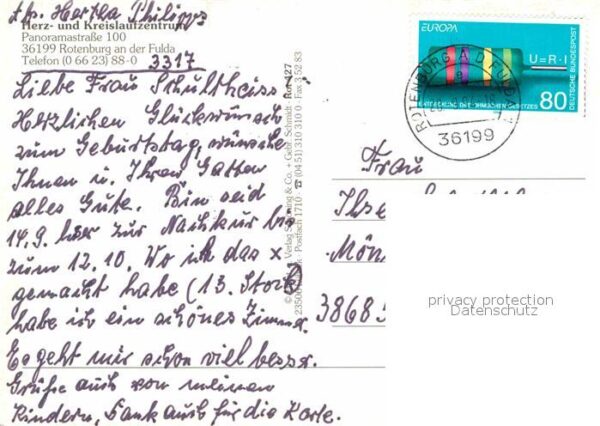 Hertha Philipps
Herz- und Kreislaufzentrum
Panoramastraße 100
36199 Rotenburg an der Fulda
Telefon (0 66 23) 88-0
3317
Liebe Frau Schultheiss
Herzlichen Glückwunsch
zum Geburtstag, wünsche
Ihnen u. Ihren Gatten
alles Gute. Bin seid
14.9. hier zur Nachkur bis
zum 12.10. Wo ich das x
gemacht habe (13. Stock)
habe ich ein schönes Zimmer.
Es geht mir schon viel besser.
Grüße auch von meinen
Kindern, Dank auch für die Karte.
Verlag Schöning & Co. + Gebr. Schmidt · Rot 127
Postfach 1710 · ☎ (04 51) 310 310 · Fax 3 52 83
EUROPA
U=R·I
80
DEUTSCHE BUNDESPOST
ROTENBURG A D FULDA
36199
Frau
Ilse
Mön
3868
privacy protection
Datenschutz